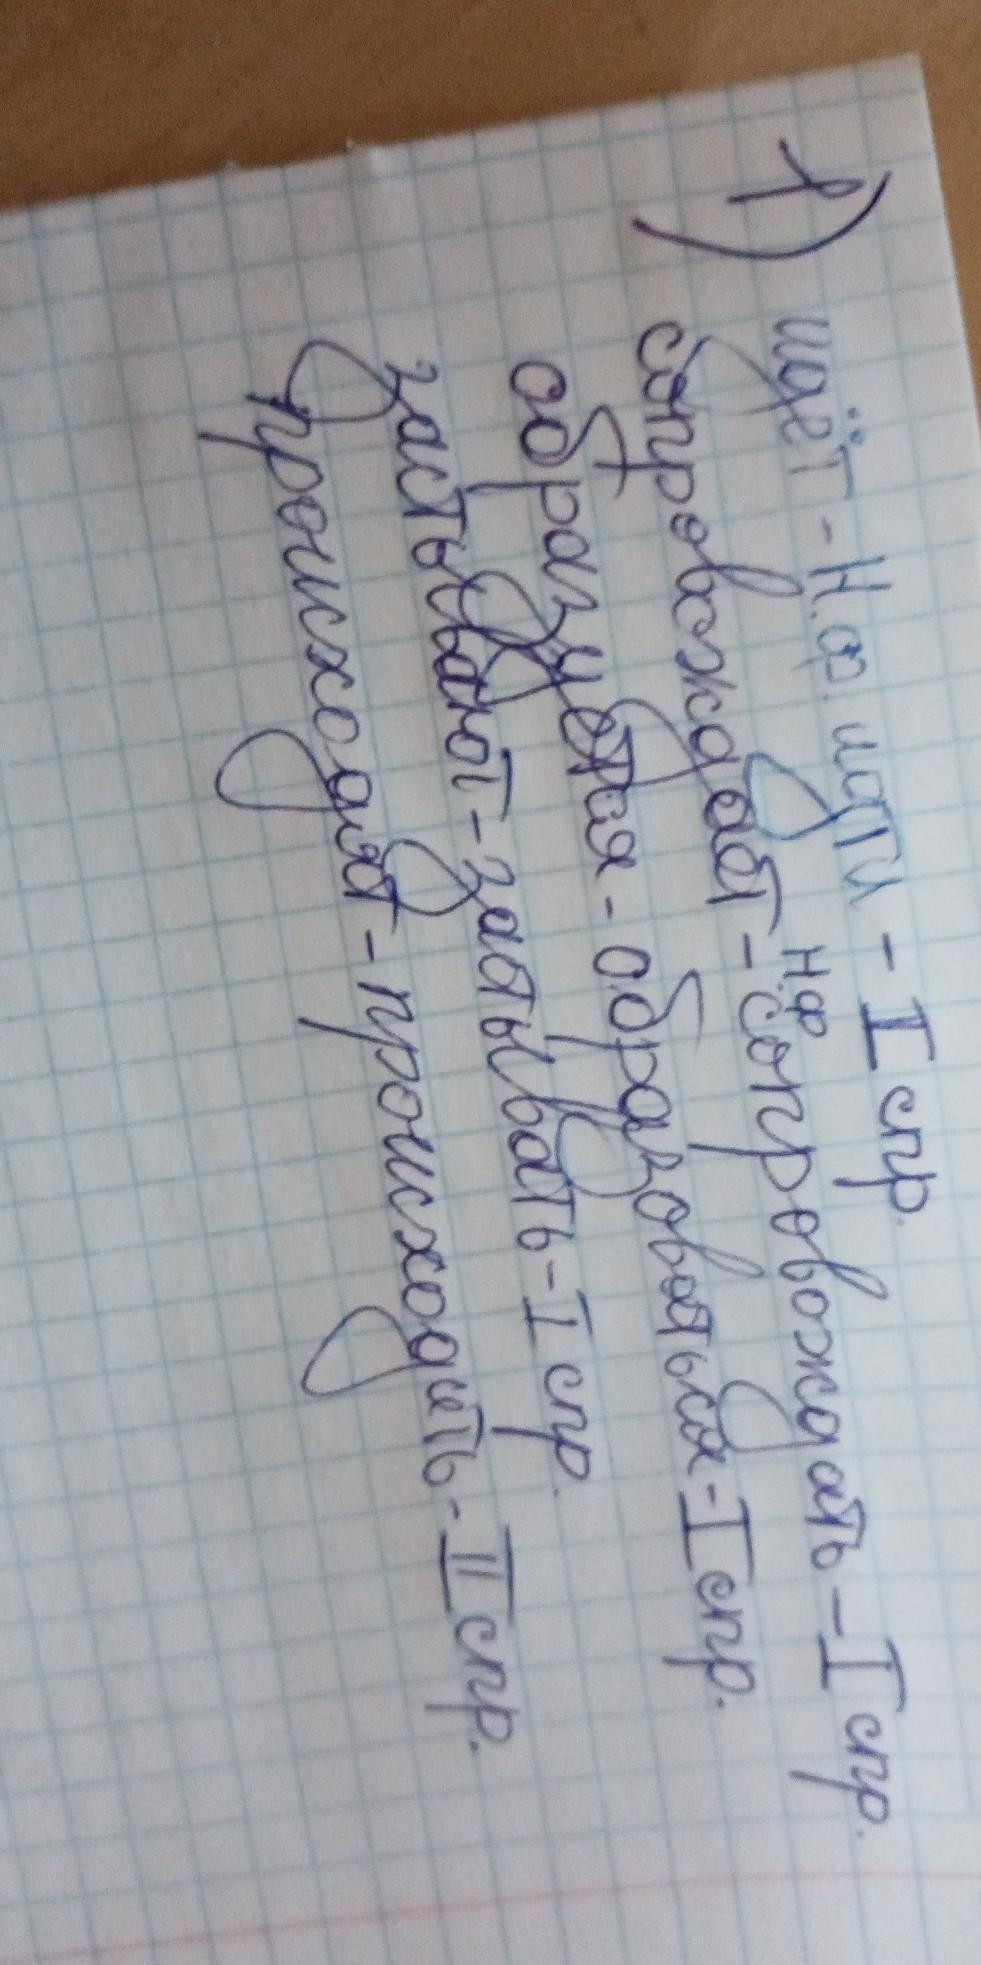 1) идёт - Н.ф. идти - I спр.
сопровождает - Н.ф сопровождать - I спр.
образуется - образоваться - I спр.
застывают - застывать - I спр.
происходят - происходить - II спр.